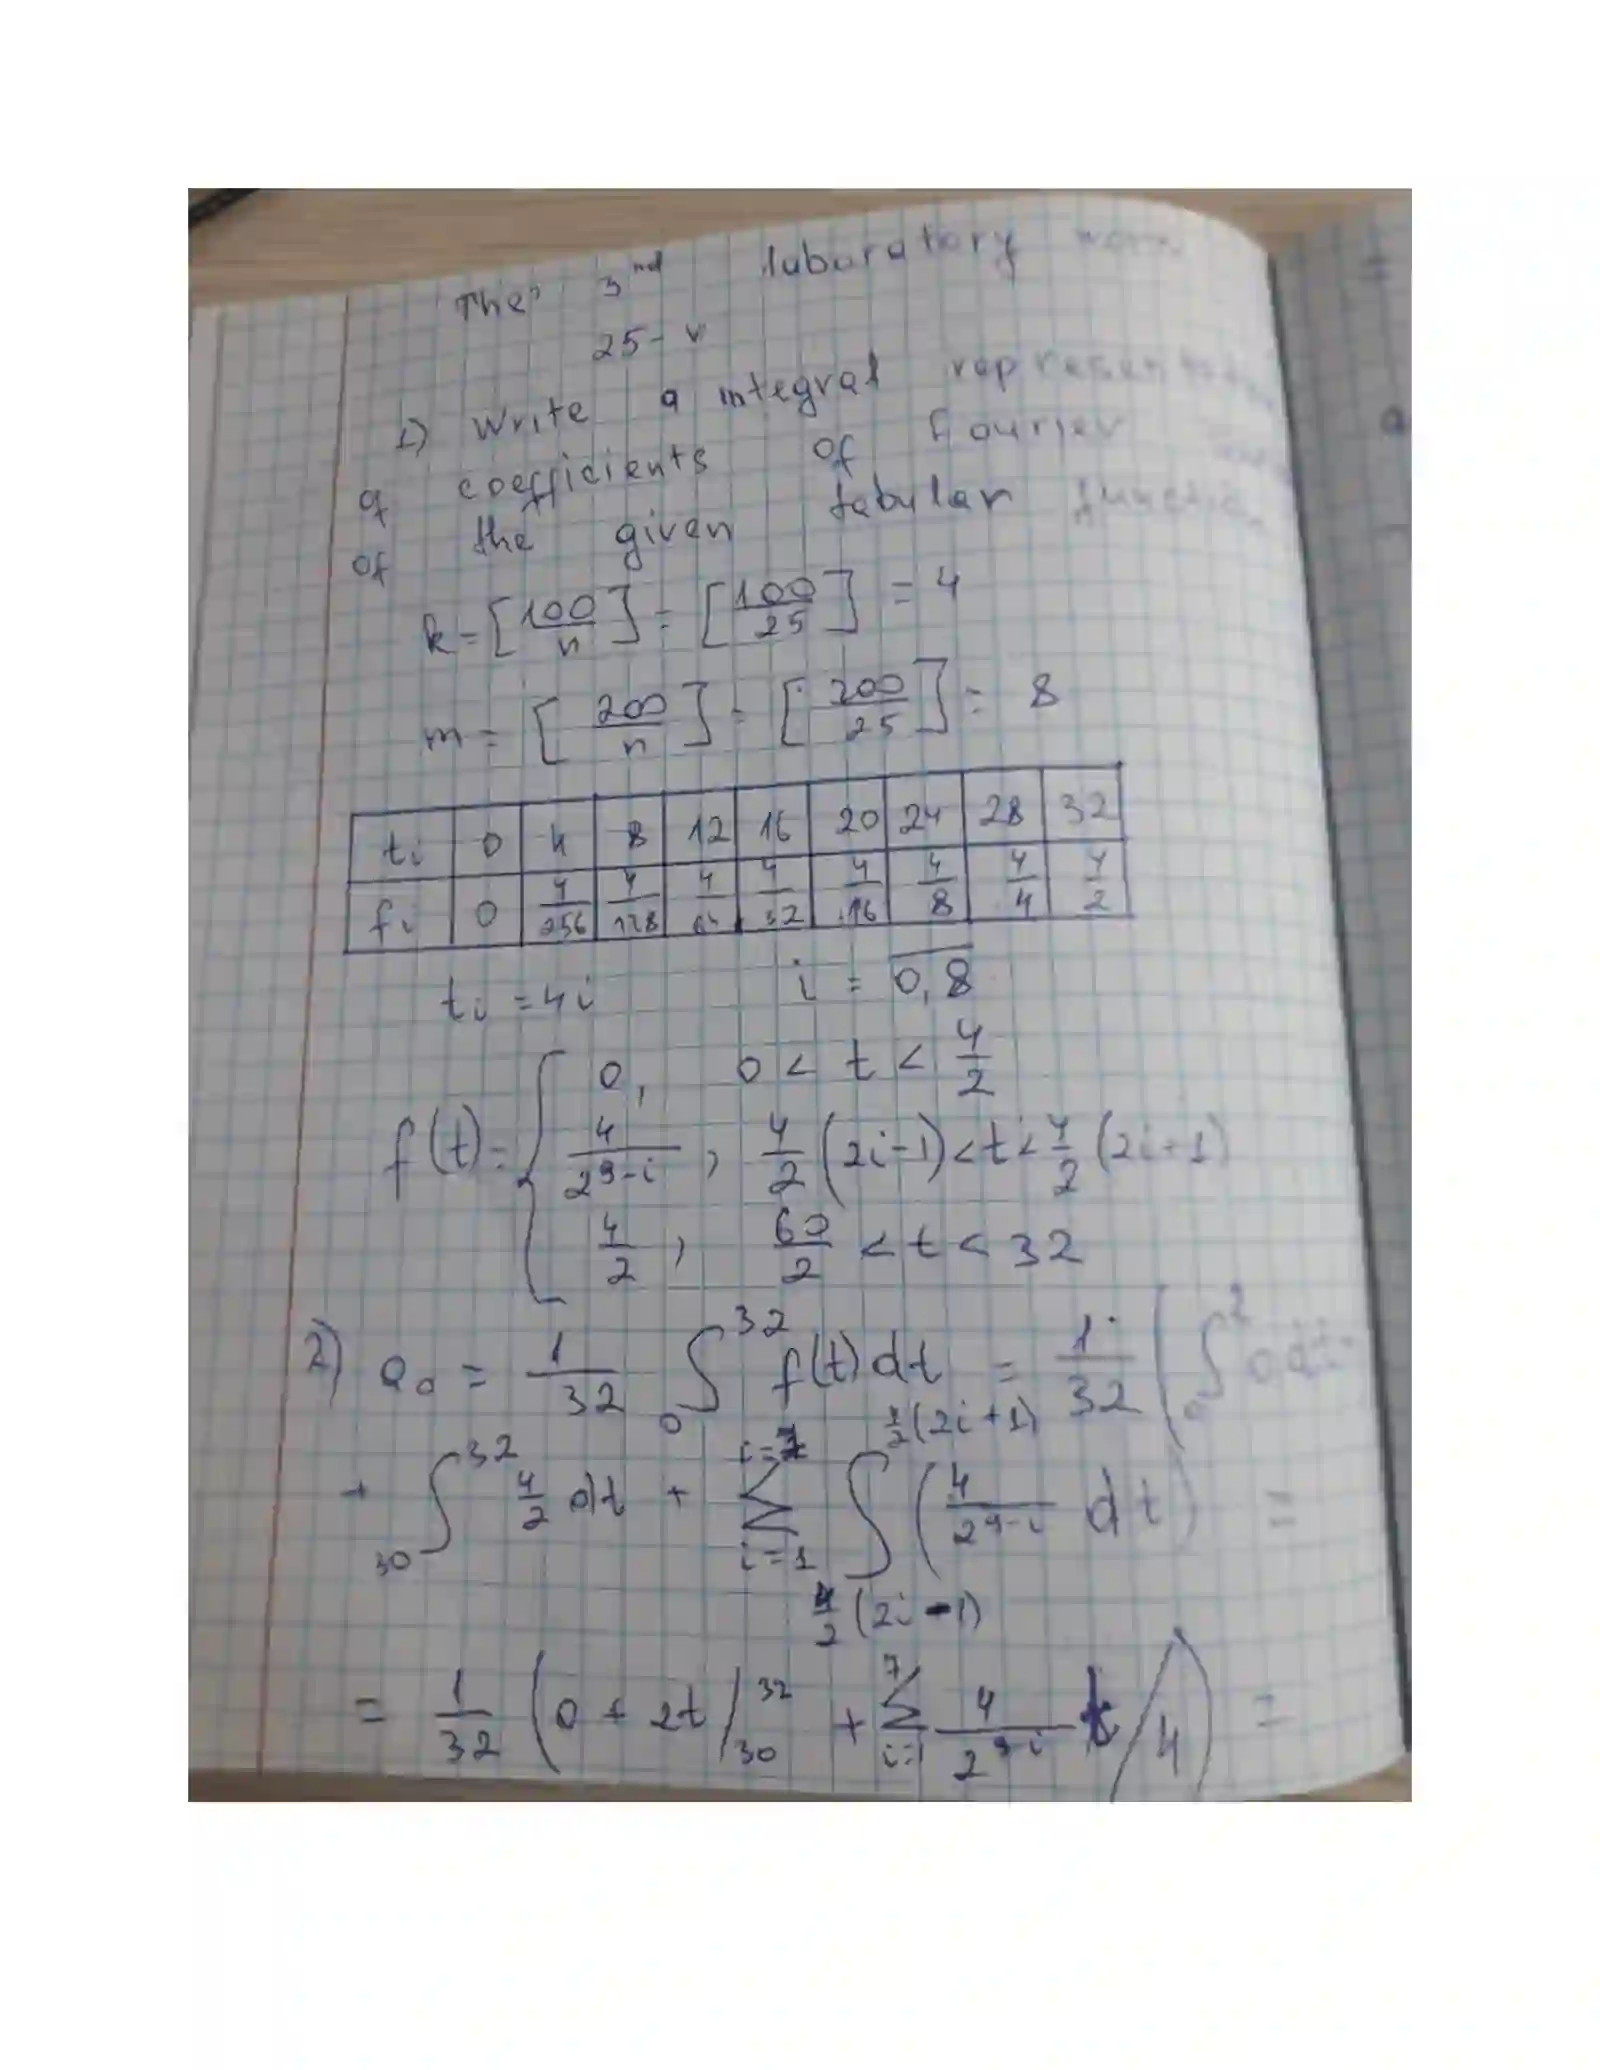 The 3nd laburatory work
25-v
1) Write a integral representation
of coefficients of Fourier
of the given tabular function
k = [100/n] = [100/25] = 4
m = [200/n] = [200/25] = 8
ti 0 4 8 12 16 20 24 28 32
fi 0 4/256 4/128 4/64 4/32 4/16 4/8 4/4 4/2
ti = 4i i = 0,8
0, 0 < t < 4/2
f(t) = { 4/2^(9-i), 4/2 (2i-1) < t < 4/2 (2i+1)
4/2, 60/2 < t < 32
2) a0 = 1/32 ∫_0^32 f(t) dt = 1/32 ( ∫_0^2 0 dt
+ ∫_30^32 4/2 dt + Σ_{i=1}^{i=7} ∫_{4/2 (2i-1)}^{4/2 (2i+1)} ( 4/2^(9-i) dt ) =
= 1/32 ( 0 + 2t |_30^32 + Σ_{i=1}^7 4/2^(9-i) t / 4 ) =